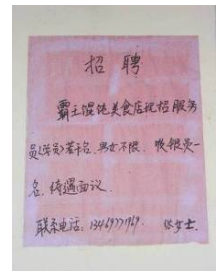 招聘
霸王馄饨美食店现招服务
员(学员)若干名.男女不限.收银员一
名.待遇面议.
联系电话: 女士.